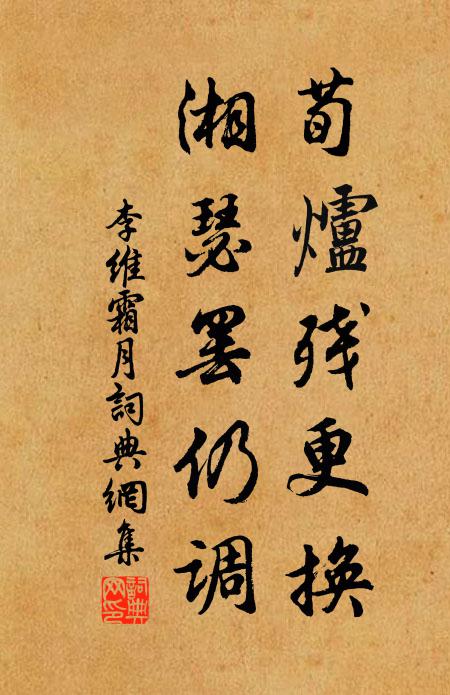 荀爐残更換
湘瑟罢仍调
李維霜月詞典網集
詞典網印